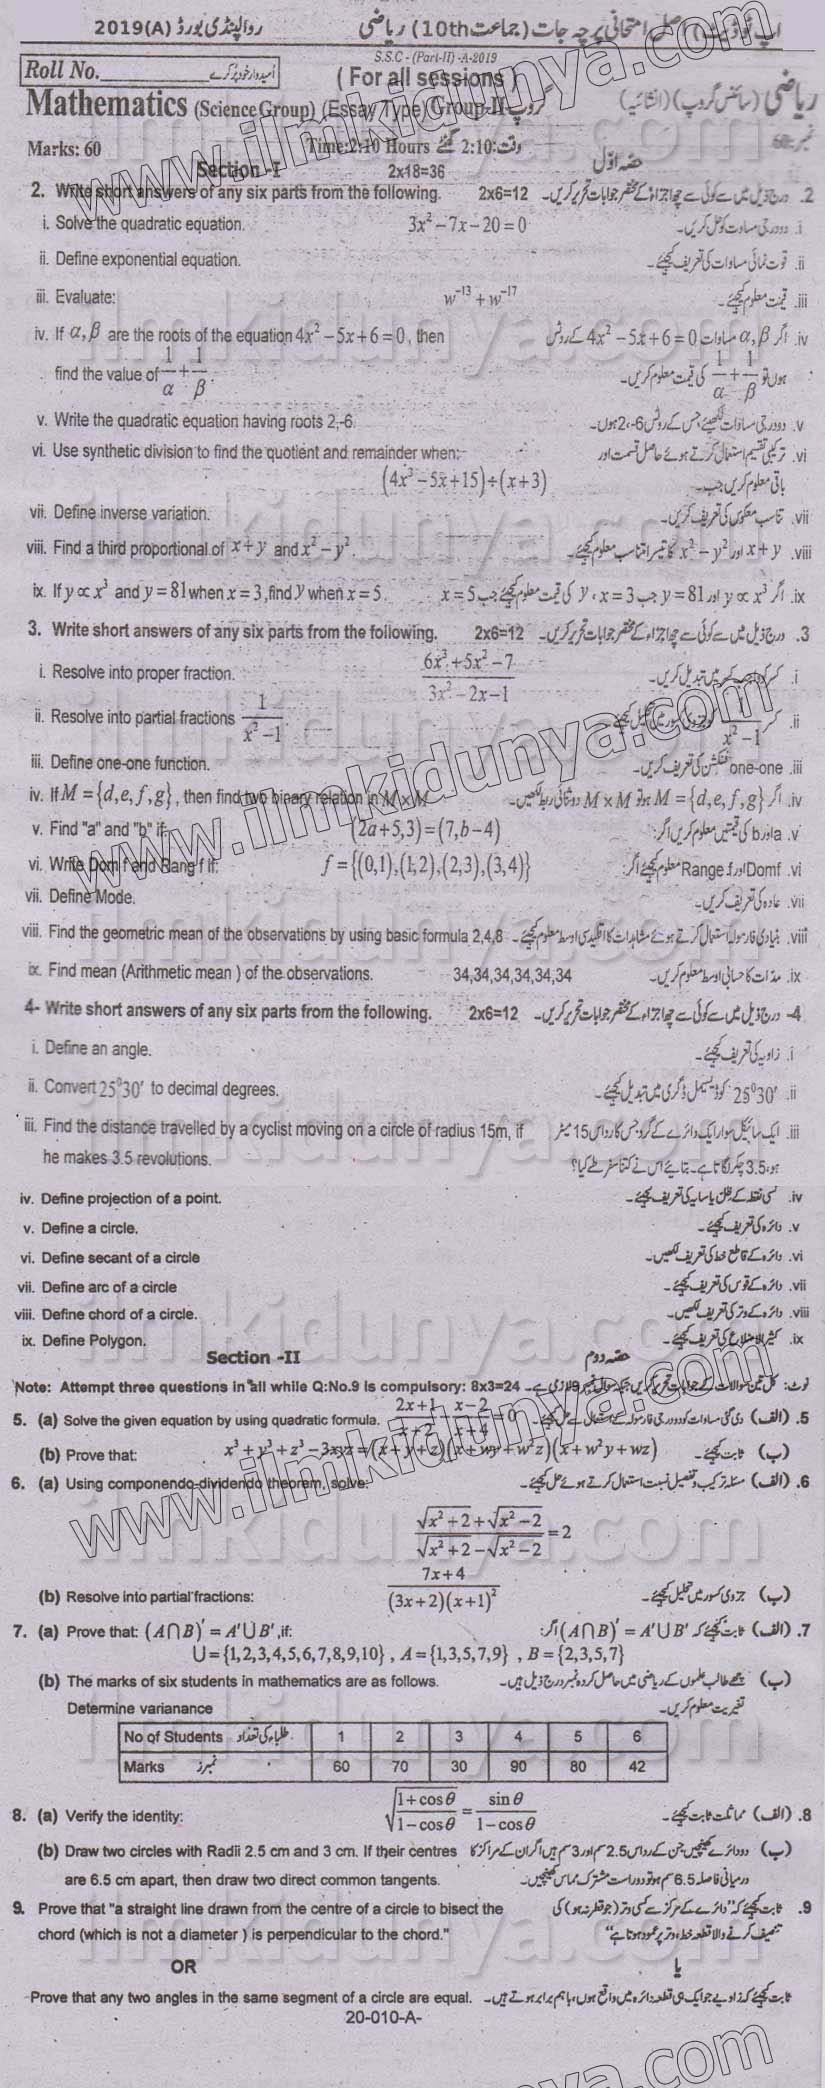 راولپنڈی بورڈ 2019(A)
اپ ٹو ڈیٹ اصلی امتحانی پرچہ جات (جماعت 10th) ریاضی
S.S.C - (Part-II) -A-2019
Roll No. امیدوار خود پُر کرے
( For all sessions )
Mathematics (Science Group) (Essay Type) Group-II گروپ
ریاضی (سائنس گروپ) (انشائیہ)
Marks: 60 Time:2:10 Hours وقت:2:10 گھنٹے نمبر:60
Section -I 2x18=36 حصہ اوّل
2. Write short answers of any six parts from the following. 2x6=12 درج ذیل میں سے کوئی سے چھ اجزاء کے مختصر جوابات تحریر کریں۔ .2
i. Solve the quadratic equation. 3x²−7x−20=0 دو درجی مساوات کو حل کریں۔ .i
ii. Define exponential equation. قوت نمائی مساوات کی تعریف کیجئے۔ .ii
iii. Evaluate: w⁻¹³ + w⁻¹⁷ قیمت معلوم کیجئے۔ .iii
iv. If α,β are the roots of the equation 4x²−5x+6=0, then اگر α,β مساوات 4x²−5x+6=0 کے روٹس .iv
find the value of 1/α + 1/β. ہوں تو 1/α + 1/β کی قیمت معلوم کریں۔
v. Write the quadratic equation having roots 2,-6. دو درجی مساوات لکھیئے جس کے روٹس 2,-6 ہوں۔ .v
vi. Use synthetic division to find the quotient and remainder when: ترکیبی تقسیم استعمال کرتے ہوئے حاصل قسمت اور .vi
(4x³−5x+15)÷(x+3) باقی معلوم کریں جب۔
vii. Define inverse variation. تناسب معکوس کی تعریف کریں۔ .vii
viii. Find a third proportional of x+y and x²−y². x+y اور x²−y² کا تیسرا تناسب معلوم کیجئے۔ .viii
ix. If y∝x³ and y=81 when x=3, find y when x=5. اگر y∝x³ اور y=81 جب x=3 ، y کی قیمت معلوم کیجئے جب x=5 .ix
3. Write short answers of any six parts from the following. 2x6=12 درج ذیل میں سے کوئی سے چھ اجزاء کے مختصر جوابات تحریر کریں۔ .3
i. Resolve into proper fraction. (6x³+5x²−7)/(3x²−2x−1) میں تبدیل کریں۔ .i
ii. Resolve into partial fractions 1/(x²−1). کسر 1/(x²−1) کو جزوی کسور میں تحلیل کیجئے۔ .ii
iii. Define one-one function. one-one فنکشن کی تعریف کریں۔ .iii
iv. If M={d,e,f,g}, then find two binary relation in M×M اگر M={d,e,f,g} ہو تو M×M دو ثنائی ربط لکھیں۔ .iv
v. Find "a" and "b" if: (2a+5,3)=(7,b−4) a اور b کی قیمتیں معلوم کریں اگر: .v
vi. Write Dom f and Rang f if: f={(0,1),(1,2),(2,3),(3,4)} Domf اور Range.f معلوم کیجئے اگر: .vi
vii. Define Mode. عادہ کی تعریف کریں۔ .vii
viii. Find the geometric mean of the observations by using basic formula 2,4,8 بنیادی فارمولہ استعمال کرتے ہوئے مشاہدات کا اقلیدسی اوسط معلوم کیجئے۔ .viii
ix. Find mean (Arithmetic mean ) of the observations. 34,34,34,34,34,34 مدّات کا حسابی اوسط معلوم کریں۔ .ix
4- Write short answers of any six parts from the following. 2x6=12 درج ذیل میں سے کوئی سے چھ اجزاء کے مختصر جوابات تحریر کریں۔ -4
i. Define an angle. زاویہ کی تعریف کیجئے۔ .i
ii. Convert 25⁰30′ to decimal degrees. 25⁰30′ کو ڈیسیمل ڈگری میں تبدیل کیجئے۔ .ii
iii. Find the distance travelled by a cyclist moving on a circle of radius 15m, if ایک سائیکل سوار ایک دائرے کے گرد جس کا رداس 15 میٹر .iii
he makes 3.5 revolutions. ہو، 3.5 چکر لگاتا ہے۔ بتائیے اس نے کتنا سفر طے کیا؟
iv. Define projection of a point. کسی نقطہ کے ظل یا سایہ کی تعریف کیجئے۔ .iv
v. Define a circle. دائرہ کی تعریف کیجئے۔ .v
vi. Define secant of a circle دائرہ کے قاطع خط کی تعریف لکھیں۔ .vi
vii. Define arc of a circle دائرہ کے قوس کی تعریف کیجئے۔ .vii
viii. Define chord of a circle. دائرہ کے وتر کی تعریف لکھیں۔ .viii
ix. Define Polygon. کثیر الاضلاع کی تعریف کیجئے۔ .ix
Section -II حصہ دوم
Note: Attempt three questions in all while Q:No.9 is compulsory: 8x3=24 نوٹ: کل تین سوالات کے جوابات تحریر کریں جبکہ سوال نمبر 9 لازمی ہے۔
5. (a) Solve the given equation by using quadratic formula. (2x+1)/(x+2) − (x−2)/(x+4) =0 (الف) دی گئی مساوات کو دو درجی فارمولہ کے استعمال سے حل کیجئے۔ .5
(b) Prove that: x³+y³+z³−3xyz=(x+y+z)(x+wy+w²z)(x+w²y+wz) (ب) ثابت کیجئے۔
6. (a) Using componendo-dividendo theorem, solve: (الف) مسئلہ ترکیب و تفصیل نسبت استعمال کرتے ہوئے حل کیجئے۔ .6
(√(x²+2)+√(x²−2))/(√(x²+2)−√(x²−2)) =2
(b) Resolve into partial fractions: (7x+4)/((3x+2)(x+1)²) (ب) جزوی کسور میں تحلیل کیجئے۔
7. (a) Prove that: (A∩B)′=A′∪B′,if: (الف) ثابت کیجئے کہ (A∩B)′=A′∪B′ اگر: .7
U={1,2,3,4,5,6,7,8,9,10} , A={1,3,5,7,9} , B={2,3,5,7}
(b) The marks of six students in mathematics are as follows. (ب) چھ طالب علموں کے ریاضی میں حاصل کردہ نمبر درج ذیل ہیں۔
Determine varianance تغیریت معلوم کریں۔
No of Students طلباء کی تعداد 1 2 3 4 5 6
Marks نمبرز 60 70 30 90 80 42
8. (a) Verify the identity: √((1+cosθ)/(1−cosθ)) = sinθ/(1−cosθ) (الف) مماثلت ثابت کیجئے۔ .8
(b) Draw two circles with Radii 2.5 cm and 3 cm. If their centres (ب) دو دائرے کھینچیں جن کے رداس 2.5 سم اور 3 سم ہیں اگر ان کے مراکز کا
are 6.5 cm apart, then draw two direct common tangents. درمیانی فاصلہ 6.5 سم ہو تو دو راست مشترک مماس کھینچیں۔
9. Prove that "a straight line drawn from the centre of a circle to bisect the ثابت کیجئے کہ "دائرے کے مرکز سے کسی وتر (جو قطر نہ ہو) کی .9
chord (which is not a diameter ) is perpendicular to the chord." تنصیف کرنے والا قطعہ خط، وتر پر عمود ہوتا ہے"
OR یا
Prove that any two angles in the same segment of a circle are equal. ثابت کیجئے کہ زاویے جو ایک ہی قطعہ دائرہ میں واقع ہوں، باہم برابر ہوتے ہیں۔
20-010-A-
www.ilmkidunya.com